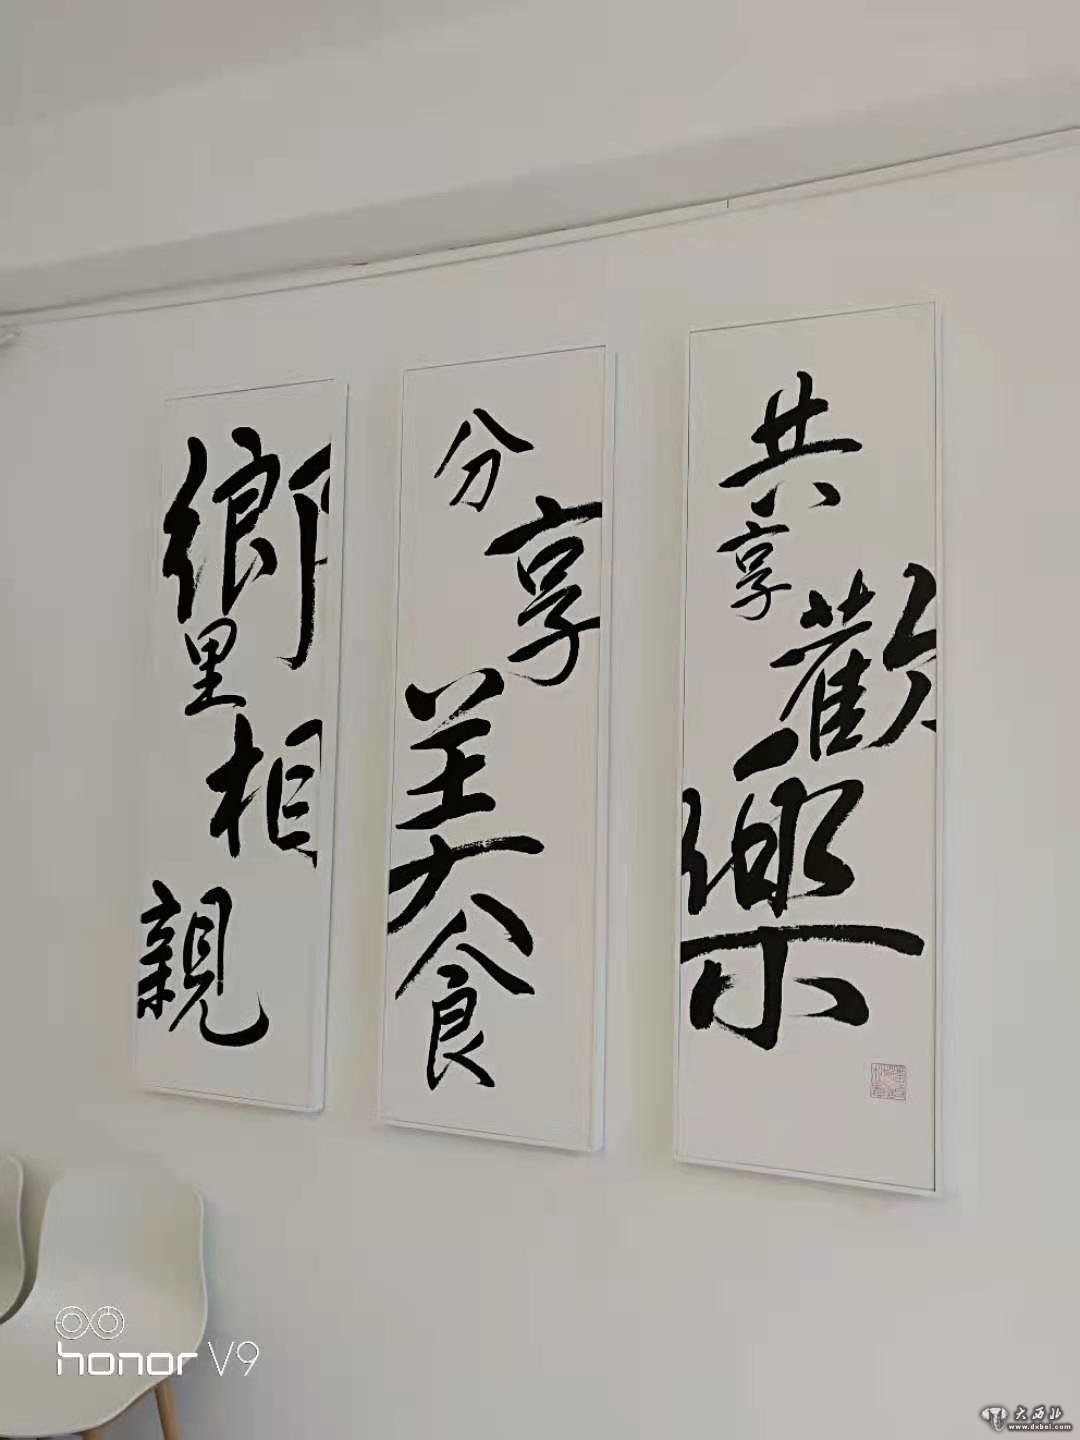 鄉里相親
分享美食
共享歡樂
honor V9
大西北
www.dxbei.com